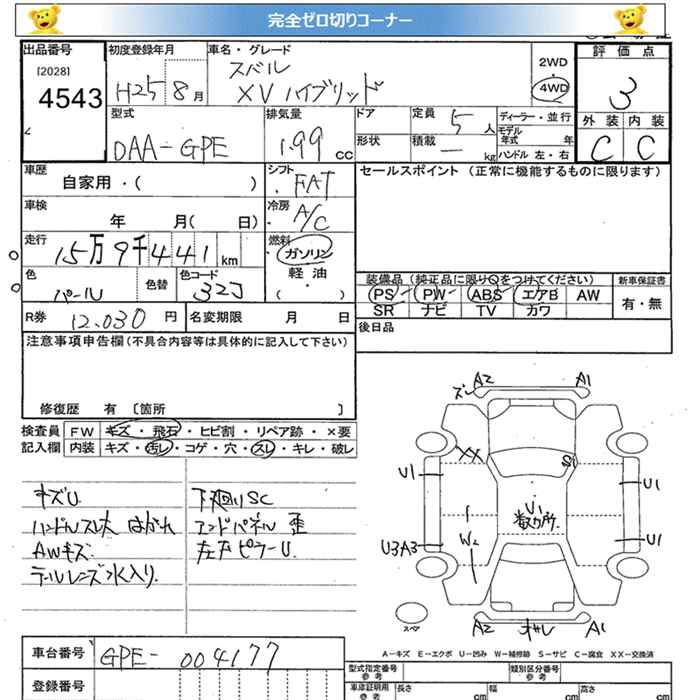 完全ゼロ切りコーナー
出品番号 初度登録年月 車名・グレード
[2028] 4543
H25 8月 スバル XV ハイブリッド
2WD ・ 4WD
評価点
3
外装 内装
C C
型式 排気量 ドア 定員 5人 ディーラー・並行
DAA-GPE 1.99 cc 形状 積載 — kg
モデル年式 年
ハンドル 左・右
車歴 シフト セールスポイント (正常に機能するものに限ります)
自家用・( ) FAT
車検 冷房
年 月( 日) A/C
走行 燃料
15万9千441km ガソリン
軽油
・( )
色 色替 色コード
パール 32J
装備品 (純正品に限り○をつけてください) 新車保証書
PS PW ABS エアB AW 有・無
SR ナビ TV カワ
R券 12.030 円 名変期限 月 日
後日品
注意事項申告欄(不具合内容等は具体的に記入して下さい)
修復歴 有 〔箇所 〕
検査員 FW キズ・飛石・ヒビ割・リペア跡・×要
記入欄 内装 キズ・汚レ・コゲ・穴・スレ・キレ・破レ
キズU 下廻りSC
ハンドルスレ大 はがれ エンドパネル 歪
AWキズ 左右ピラーU
テールレンズ水入り
ズレ A2 A1
XX S1
U1 U1
U1
数ヶ所
U3A3 W2 U1
スペア
A2 オサレ A1
A-キズ E-エクボ U-凹み W-補修跡 S-サビ C-腐食 XX-交換済
車台番号 GPE-004177
登録番号
型式指定番号 参考 類別区分番号 参考
車庫証明用 参考 長さ cm 幅 cm 高さ cm